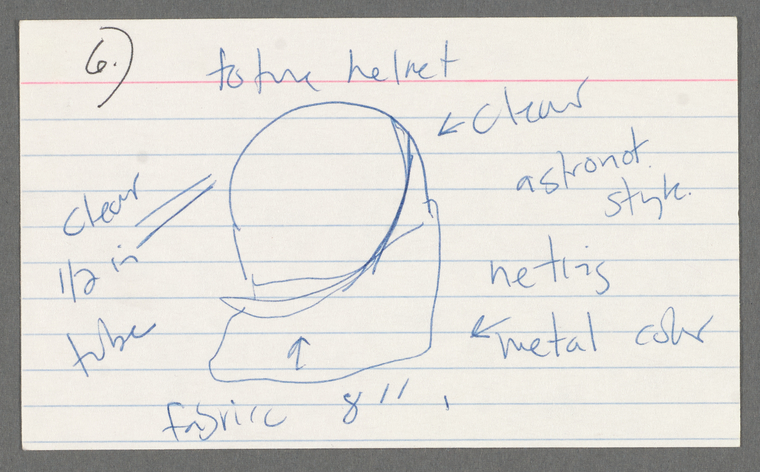 6.)
future helmet
← clear
astronot
style.
clear
1/2 in
tube
neting
← metal color
↑
fabric 8"